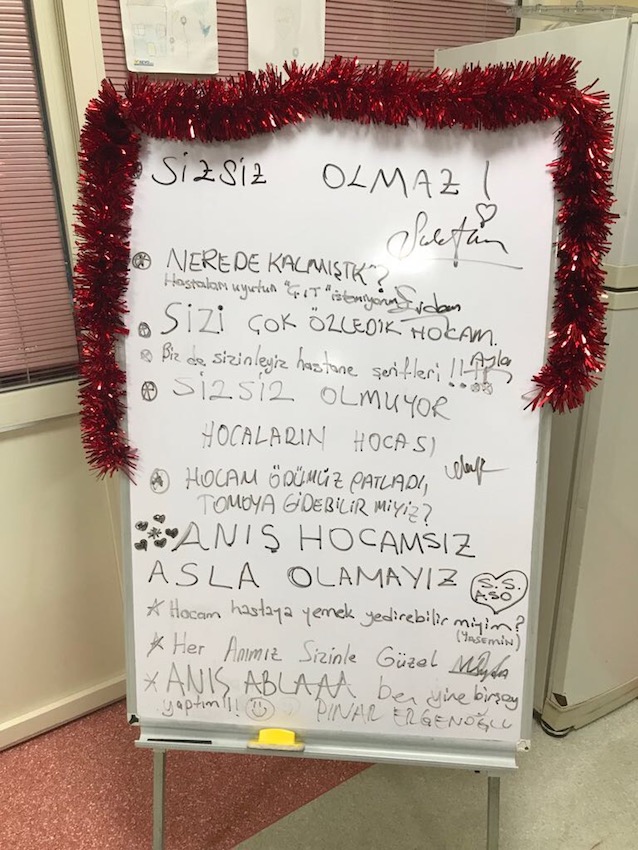 SİZSİZ OLMAZ!
NEREDE KALMIŞTK"?
Hastaları uyutun "ÇIT" istemiyorum
SİZİ ÇOK ÖZLEDİK HOCAM.
Biz de sizinleyiz hastane şerifleri!!
SİZSİZ OLMUYOR
HOCALARIN HOCASI
HOCAM ÖDÜMÜZ PATLADI,
TOMOYA GİDEBİLİR MİYİZ?
ANIŞ HOCAMSIZ
ASLA OLAMAYIZ
S.S.
ASO.
Hocam hastaya yemek yedirebilir miyim?
(YASEMİN)
Her Anımız Sizinle Güzel
ANIŞ ABLAAA ben yine birşey
yaptım!!!
PINAR ERGENOĞLU